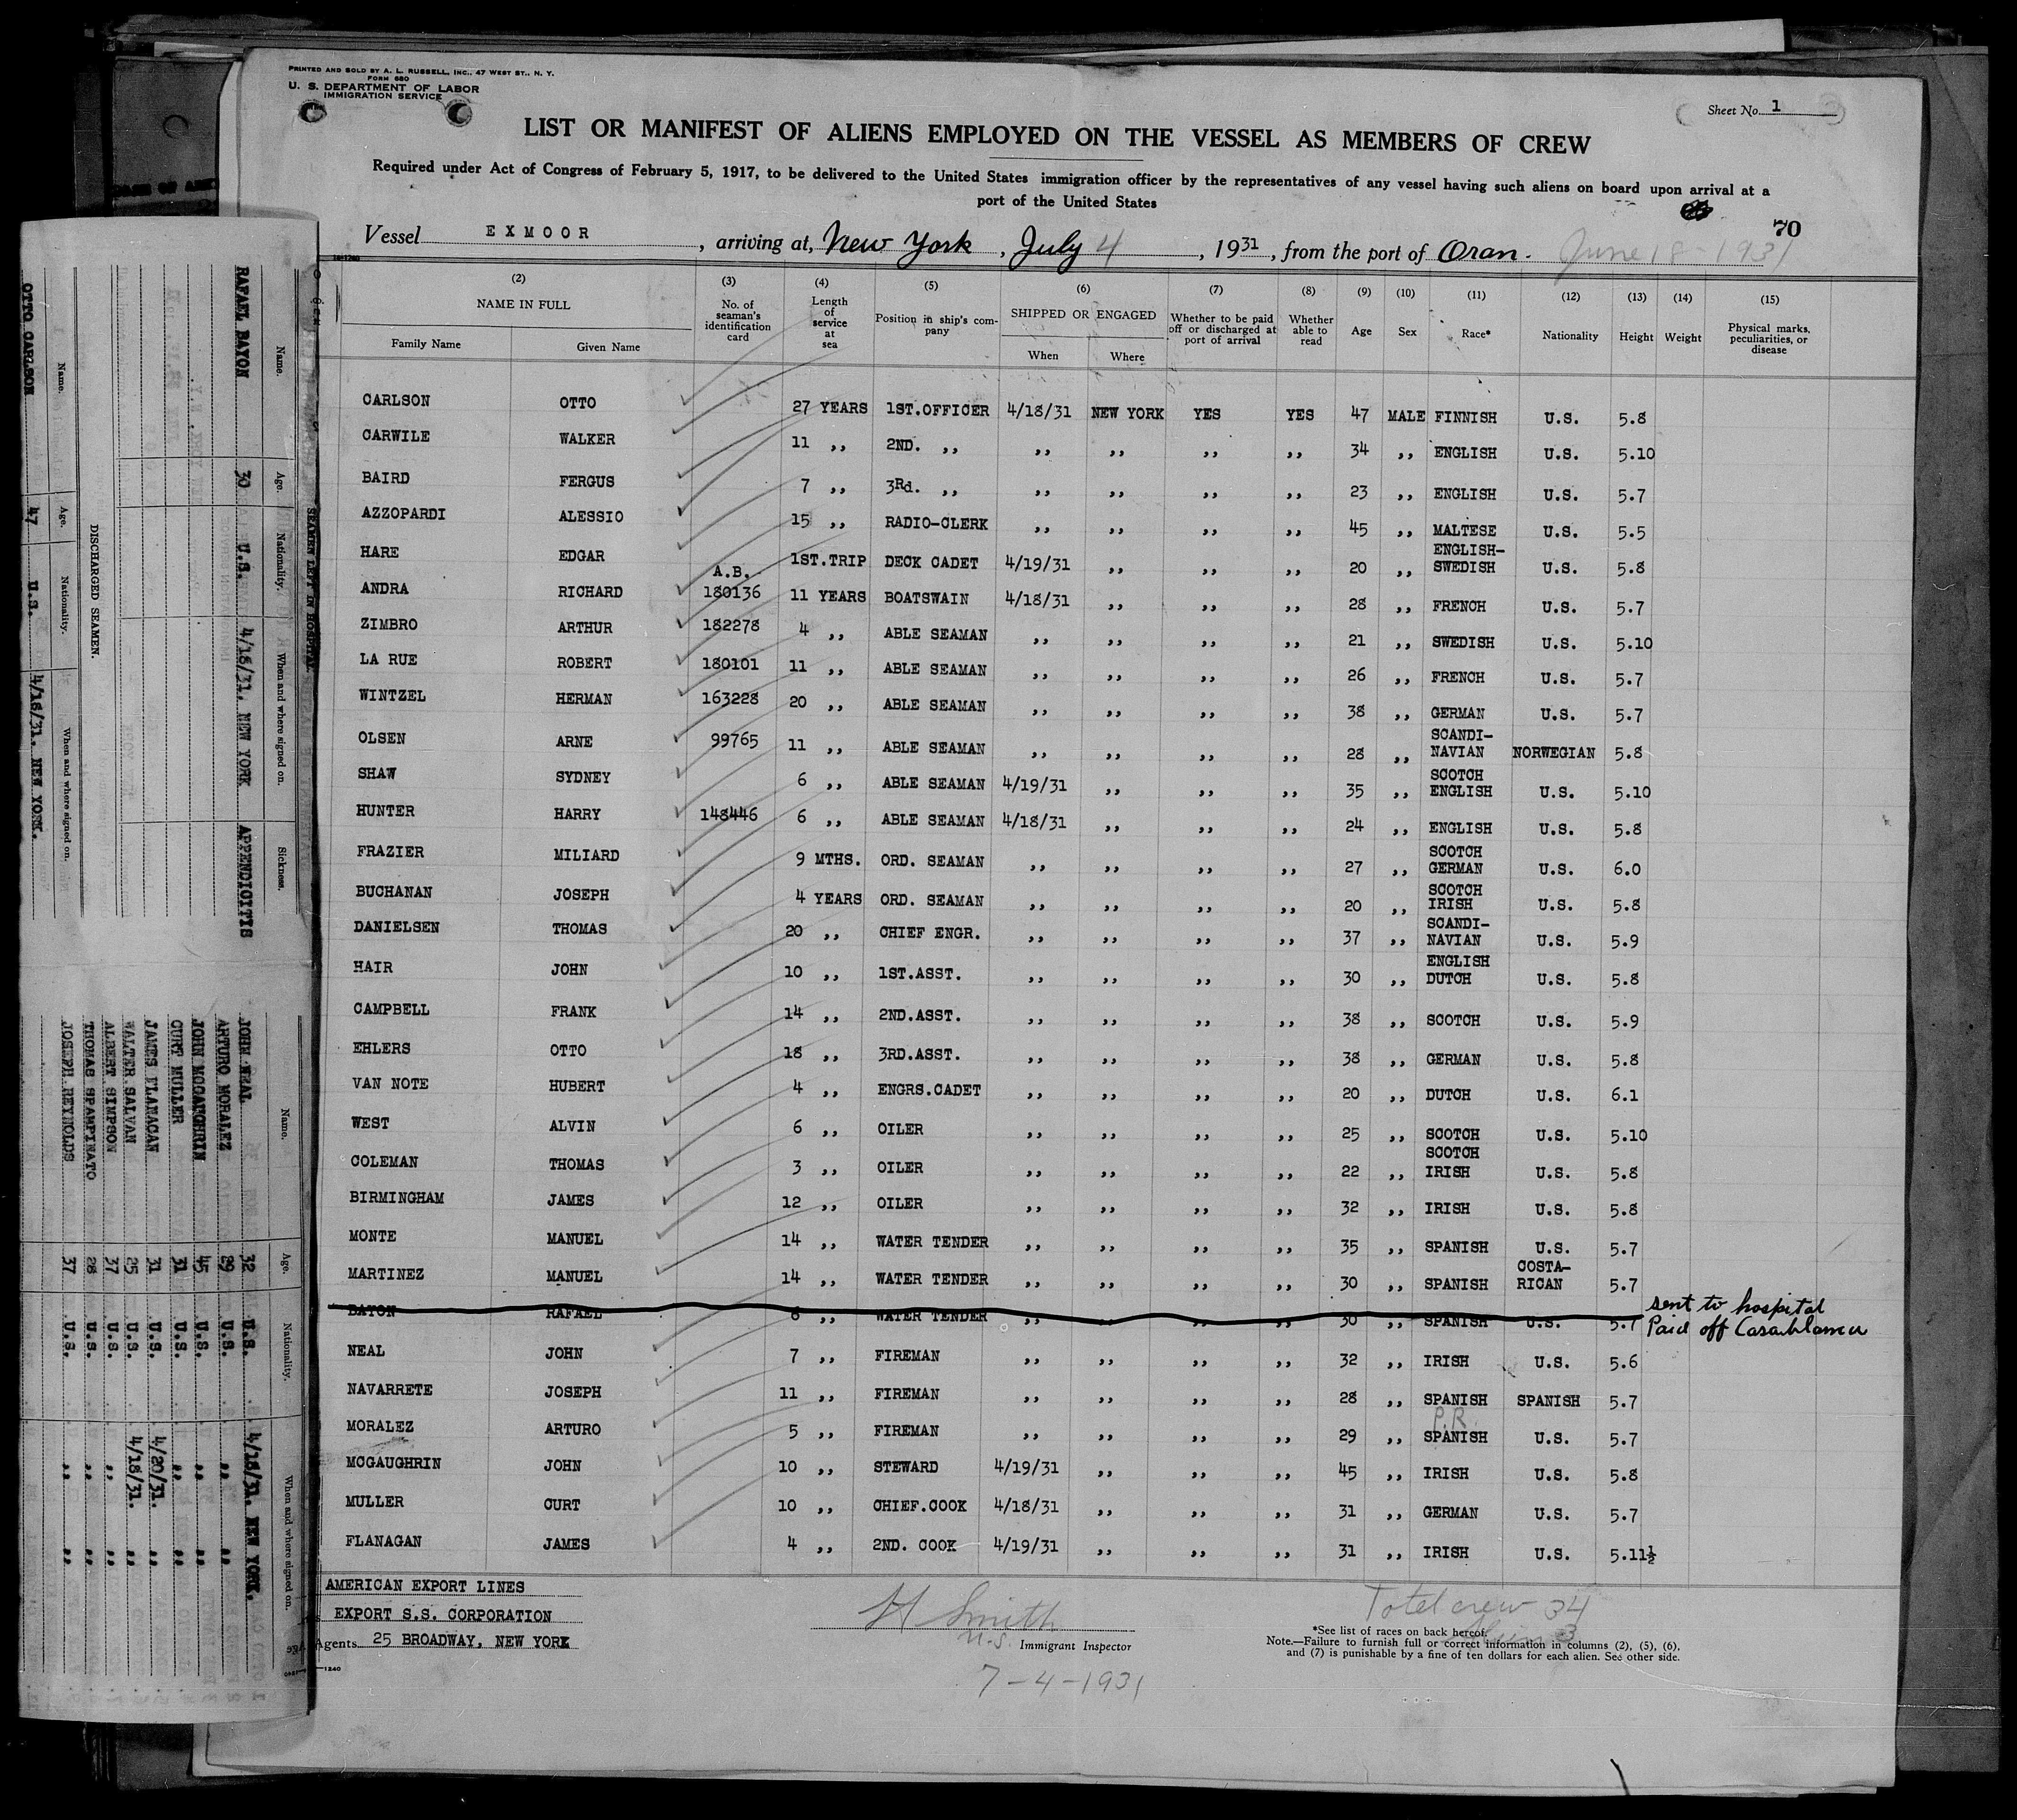 PRINTED AND SOLD BY A. L. RUSSELL, INC., 47 WEST ST., N. Y.
FORM 680
U. S. DEPARTMENT OF LABOR
IMMIGRATION SERVICE
Sheet No. 1
LIST OR MANIFEST OF ALIENS EMPLOYED ON THE VESSEL AS MEMBERS OF CREW
Required under Act of Congress of February 5, 1917, to be delivered to the United States immigration officer by the representatives of any vessel having such aliens on board upon arrival at a
port of the United States
70
Vessel EXMOOR, arriving at, New York, July 4, 1931, from the port of Oran. June 18-1931
(2) (3) (4) (5) (6) (7) (8) (9) (10) (11) (12) (13) (14) (15)
NAME IN FULL No. of seaman's identification card Length of service at sea Position in ship's company SHIPPED OR ENGAGED Whether to be paid off or discharged at port of arrival Whether able to read Age Sex Race* Nationality Height Weight Physical marks, peculiarities, or disease
Family Name Given Name When Where
CARLSON OTTO 27 YEARS 1ST.OFFICER 4/18/31 NEW YORK YES YES 47 MALE FINNISH U.S. 5.8
CARWILE WALKER 11 ,, 2ND. ,, ,, ,, ,, ,, 34 ,, ENGLISH U.S. 5.10
BAIRD FERGUS 7 ,, 3Rd. ,, ,, ,, ,, ,, 23 ,, ENGLISH U.S. 5.7
AZZOPARDI ALESSIO 15 ,, RADIO-CLERK ,, ,, ,, ,, 45 ,, MALTESE U.S. 5.5
HARE EDGAR 1ST.TRIP DECK CADET 4/19/31 ,, ,, ,, 20 ,, ENGLISH-SWEDISH U.S. 5.8
ANDRA RICHARD A.B. 180136 11 YEARS BOATSWAIN 4/18/31 ,, ,, ,, 28 ,, FRENCH U.S. 5.7
ZIMBRO ARTHUR 182278 4 ,, ABLE SEAMAN ,, ,, ,, ,, 21 ,, SWEDISH U.S. 5.10
LA RUE ROBERT 180101 11 ,, ABLE SEAMAN ,, ,, ,, ,, 26 ,, FRENCH U.S. 5.7
WINTZEL HERMAN 163228 20 ,, ABLE SEAMAN ,, ,, ,, ,, 38 ,, GERMAN U.S. 5.7
OLSEN ARNE 99765 11 ,, ABLE SEAMAN ,, ,, ,, ,, 28 ,, SCANDI-NAVIAN NORWEGIAN 5.8
SHAW SYDNEY 6 ,, ABLE SEAMAN 4/19/31 ,, ,, ,, 35 ,, SCOTCH ENGLISH U.S. 5.10
HUNTER HARRY 148446 6 ,, ABLE SEAMAN 4/18/31 ,, ,, ,, 24 ,, ENGLISH U.S. 5.8
FRAZIER MILIARD 9 MTHS. ORD. SEAMAN ,, ,, ,, ,, 27 ,, SCOTCH GERMAN U.S. 6.0
BUCHANAN JOSEPH 4 YEARS ORD. SEAMAN ,, ,, ,, ,, 20 ,, SCOTCH IRISH U.S. 5.8
DANIELSEN THOMAS 20 ,, CHIEF ENGR. ,, ,, ,, ,, 37 ,, SCANDI-NAVIAN U.S. 5.9
HAIR JOHN 10 ,, 1ST.ASST. ,, ,, ,, ,, 30 ,, ENGLISH DUTCH U.S. 5.8
CAMPBELL FRANK 14 ,, 2ND.ASST. ,, ,, ,, ,, 38 ,, SCOTCH U.S. 5.9
EHLERS OTTO 18 ,, 3RD.ASST. ,, ,, ,, ,, 38 ,, GERMAN U.S. 5.8
VAN NOTE HUBERT 4 ,, ENGRS.CADET ,, ,, ,, ,, 20 ,, DUTCH U.S. 6.1
WEST ALVIN 6 ,, OILER ,, ,, ,, ,, 25 ,, SCOTCH U.S. 5.10
COLEMAN THOMAS 3 ,, OILER ,, ,, ,, ,, 22 ,, SCOTCH IRISH U.S. 5.8
BIRMINGHAM JAMES 12 ,, OILER ,, ,, ,, ,, 32 ,, IRISH U.S. 5.8
MONTE MANUEL 14 ,, WATER TENDER ,, ,, ,, ,, 35 ,, SPANISH U.S. 5.7
MARTINEZ MANUEL 14 ,, WATER TENDER ,, ,, ,, ,, 30 ,, SPANISH COSTA-RICAN 5.7
BAYON RAFAEL 6 ,, WATER TENDER ,, ,, ,, ,, 30 ,, SPANISH U.S. 5.7 sent to hospital
Paid off Casablanca
NEAL JOHN 7 ,, FIREMAN ,, ,, ,, ,, 32 ,, IRISH U.S. 5.6
NAVARRETE JOSEPH 11 ,, FIREMAN ,, ,, ,, ,, 28 ,, SPANISH SPANISH 5.7
MORALEZ ARTURO 5 ,, FIREMAN ,, ,, ,, ,, 29 ,, P.R. SPANISH U.S. 5.7
MCGAUGHRIN JOHN 10 ,, STEWARD 4/19/31 ,, ,, ,, 45 ,, IRISH U.S. 5.8
MULLER CURT 10 ,, CHIEF.COOK 4/18/31 ,, ,, ,, 31 ,, GERMAN U.S. 5.7
FLANAGAN JAMES 4 ,, 2ND. COOK 4/19/31 ,, ,, ,, 31 ,, IRISH U.S. 5.11½
AMERICAN EXPORT LINES
EXPORT S.S. CORPORATION
Agents 25 BROADWAY, NEW YORK
H Smith
U.S. Immigrant Inspector
7-4-1931
Total crew 34
*See list of races on back hereof.
Note.—Failure to furnish full or correct information in columns (2), (5), (6),
and (7) is punishable by a fine of ten dollars for each alien. See other side.
SEAMEN LEFT IN HOSPITAL
Name. Age. Nationality. When and where signed on. Sickness.
RAFAEL BAYON 30 U.S. 4/18/31. NEW YORK APPENDICITIS
DISCHARGED SEAMEN.
Name. Age. Nationality. When and where signed on.
OTTO CARLSON 47 U.S. 4/18/31. NEW YORK.
Name. Age. Nationality. When and where signed on.
JOHN NEAL 32 U.S. 4/18/31. NEW YORK.
ARTURO MORALEZ 29 U.S. ,, ,,
JOHN MCGAUGHRIN 45 U.S. ,, ,,
CURT MULLER 31 U.S. ,, ,,
JAMES FLANAGAN 31 U.S. 4/20/31. ,,
WALTER SALVAN 25 U.S. 4/18/31. ,,
ALBERT SIMPSON 37 U.S. ,, ,,
THOMAS SPAMPINATO 28 U.S. ,, ,,
JOSEPH REYNOLDS 37 U.S. ,, ,,